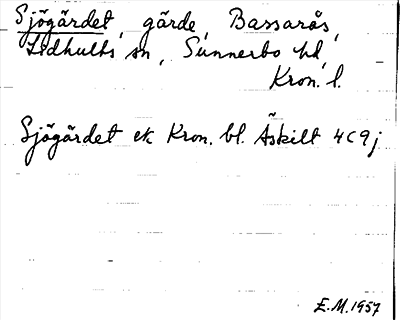 Sjögärdet, gärde, Bassarås,
Lidhults sn, Sunnerbo hd,
Kron. l.
Sjögärdet ek Kron. bl. Äskilt 4C9j
E.M. 1957